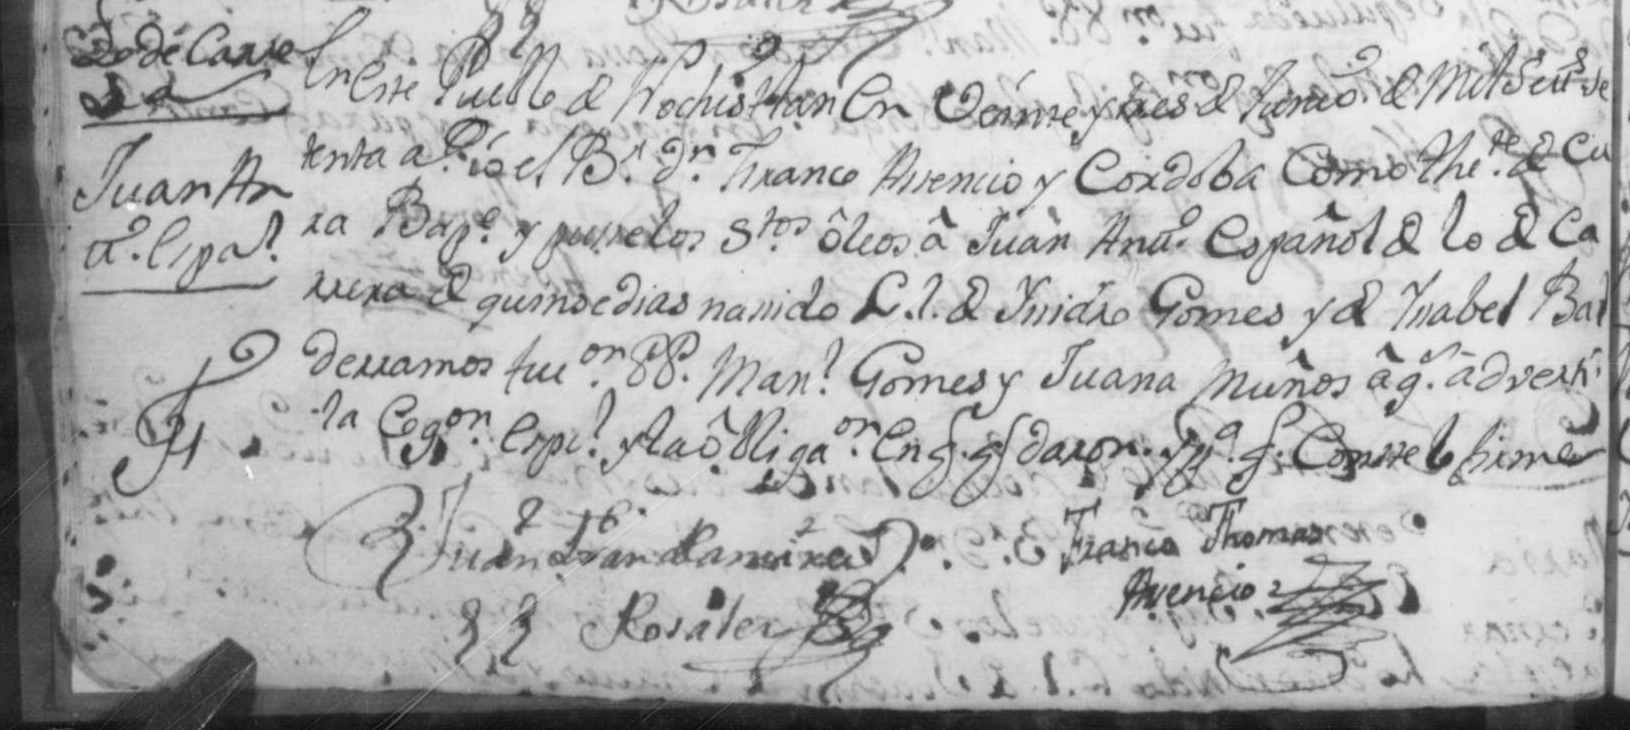 Lo de Carre
ra
Juan An
tt.º Espa.l
En este Pueblo de Nochistlan en Veinte y tres de Junio. de Mil Sett.s se
tenta a.s Yo el B.r d.n Franco Asencio y Cordoba Como the.te de Cu
ra Bap.e y puse los S.tos ôleos â Juan Antt.º Español de lo de Ca
rrera de quinse dias nasido L. l. de Ysidro Gomes y de Ysabel Bal
derramos fue.on PP. Man.l Gomes y Juana Muños â q.s âdverti
la Cog.on Espi.l y la ôbliga.on en q. q.daron. y p.a q. Conste lo firme
Juan Ramires
Rosales
Franco Thomas
Asencio